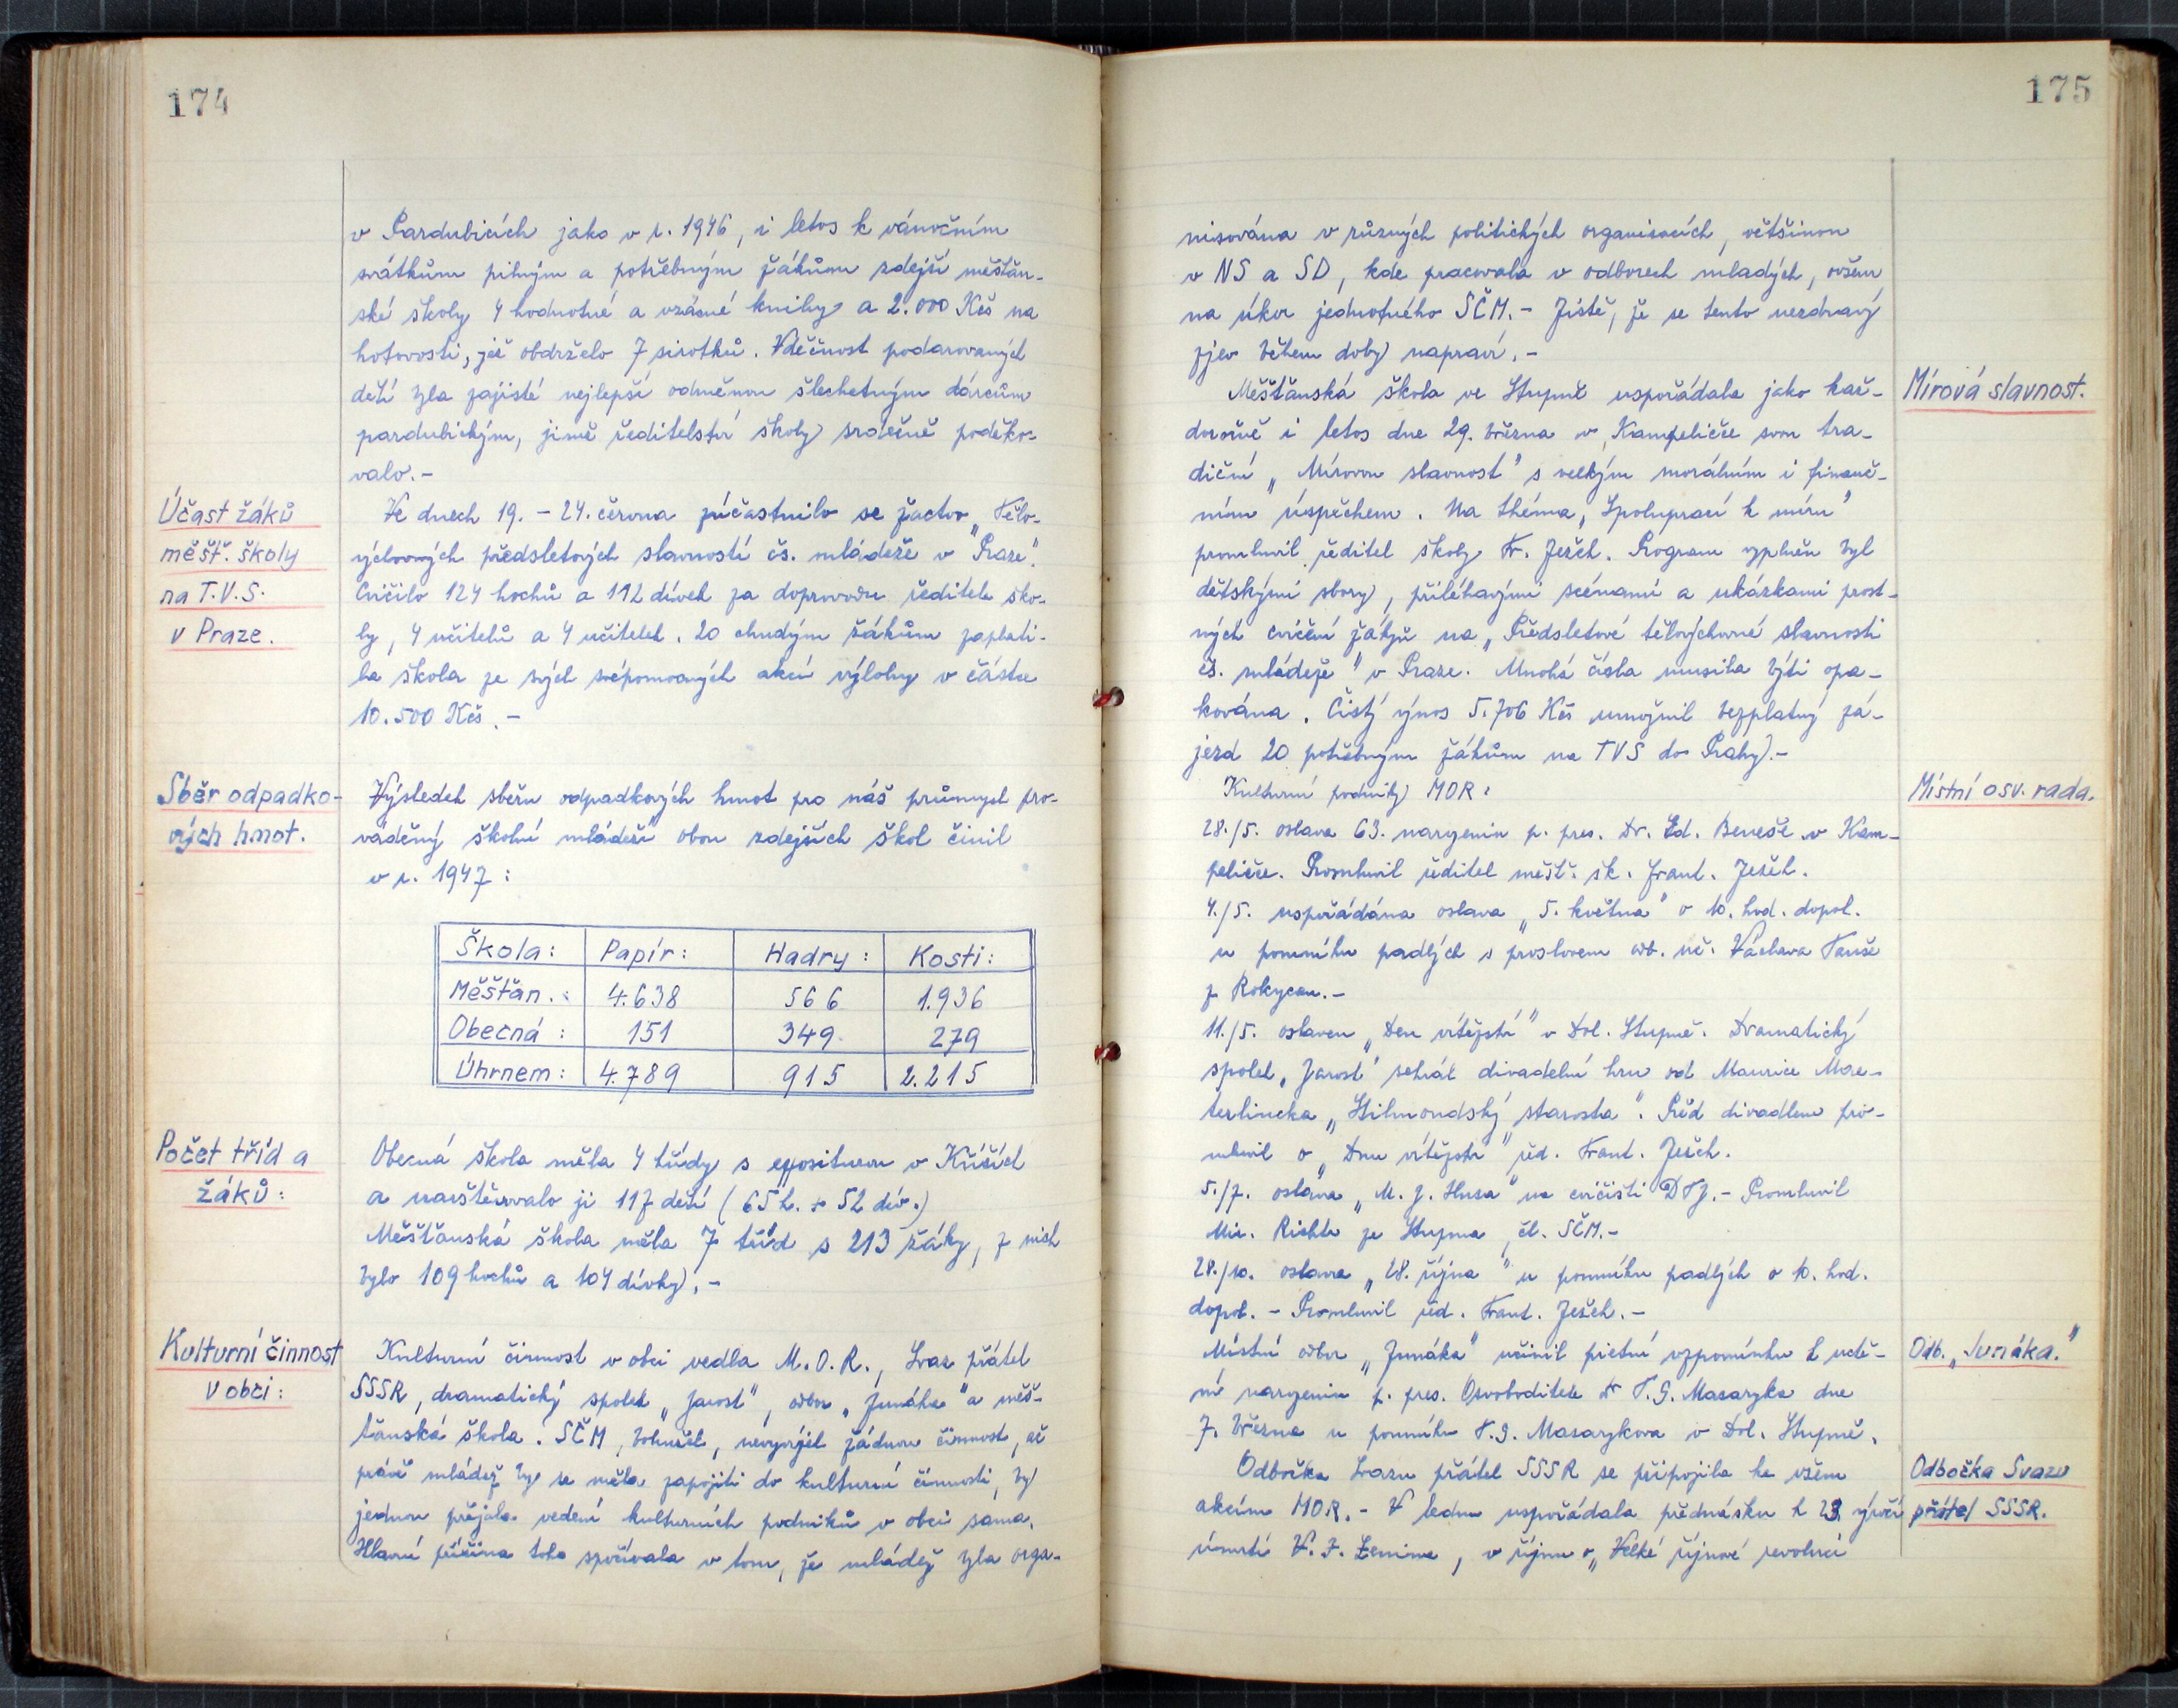 174
v Pardubicích jako v r. 1946, i letos k vánočním
svátkům pilným a potřebným žákům zdejší měšťan-
ské školy 4 hodnotné a vzácné knihy a 2.000 Kčs na
hotovosti, jež obdrželo 7 sirotků. Vděčnost podarovaných
dětí byla zajisté nejlepší odměnou šlechetným dárcům
pardubickým, jimž ředitelství školy srdečně poděko-
valo.-
Účast žáků
měšť. školy
na T.V.S.
v Praze.
Ve dnech 19. - 24. června zúčastnilo se žactvo „Tělo-
výchovných předsletových slavností čs. mládeže v Praze".
Cvičilo 124 hochů a 112 dívek za doprovodu ředitele ško-
ly, 4 učitelů a 4 učitelek. 20 chudým žákům zaplati-
la škola ze svých svépomocných akcí výlohy v částce
10.500 Kčs.-
Sběr odpadko-
vých hmot.
Výsledek sběru odpadkových hmot pro náš průmysl pro-
váděný školní mládeží obou zdejších škol činil
v r. 1947:
Škola: Papír: Hadry: Kosti:
Měšťan.: 4.638 566 1.936
Obecná: 151 349 279
Úhrnem: 4.789 915 2.215
Počet tříd a
žáků:
Obecná škola měla 4 třídy s expositurou v Kříších
a navštěvovalo ji 117 dětí (65 h. + 52 dív.)
Měšťanská škola měla 7 tříd s 213 žáky, z nich
bylo 109 hochů a 104 dívky.-
Kulturní činnost
v obci:
Kulturní činnost v obci vedla M.O.R., Svaz přátel
SSSR, dramatický spolek „Jarost", odbor „Junáka" a měš-
ťanská škola. SČM, bohužel, nevyvíjel žádnou činnost, ač
právě mládež by se měla zapojiti do kulturní činnosti, by
jednou přejala vedení kulturních podniků v obci sama.
Hlavní příčina toho spočívala v tom, že mládež byla orga-
175
nisována v různých politických organisacích, většinou
v NS a SD, kde pracovala v odborech mladých, ovšem
na úkor jednotného SČM.- Jistě, že se tento nezdravý
zjev během doby napraví.-
Mírová slavnost.
Měšťanská škola ve Stupně uspořádala jako kaž-
doročně i letos dne 29. března v Kampeličce svou tra-
diční „Mírovou slavnost" s velkým morálním i finanč-
ním úspěchem. Na théma „Spoluprací k míru"
promluvil ředitel školy Fr. Ježek. Program vyplněn byl
dětskými sbory, přiléhavými scénami a ukázkami prost-
ných cvičení žáků na „Předsletové tělovýchovné slavnosti
čs. mládeže" v Praze. Mnohá čísla musila býti opa-
kována. Čistý výnos 5.706 Kčs umožnil bezplatný zá-
jezd 20 potřebným žákům na TVS do Prahy.-
Místní osv. rada.
Kulturní podniky MOR:
28./5. oslava 63. narozenin p. pres. Dr. Ed. Beneše v Kam-
peličce. Promluvil ředitel měšť. šk. Frant. Ježek.
4./5. uspořádána oslava „5. května" o 10. hod. dopol.
u pomníku padlých s proslovem odb. uč. Václava
z Rokycan.-
11./5. oslaven „Den vítězství" v Dol. Stupně. Dramatický
spolek „Jarost" sehrál divadelní hru od Maurice Mae-
terlincka „Stilmondský starosta". Před divadlem pro-
mluvil o „Dnu vítězství" řed. Frant. Ježek.
5./7. oslava „M. J. Husa" na cvičišti DTJ.- Promluvil
Mir. Richtr ze Stupna, čl. SČM.-
28./10. oslava „28. října" u pomníku padlých o 10. hod.
dopol. - Promluvil řed. Frant. Ježek.-
Odb. „Junáka."
Místní odbor „Junáka" učinil pietní vzpomínku k nedě-
ní narozenin p. pres. Osvoboditele Dr T.G. Masaryka dne
7. března u pomníku T.G. Masarykova v Dol. Stupně.
Odbočka Svazu
přátel SSSR.
Odbočka Svazu přátel SSSR se připojila ke všem
akcím MOR.- V lednu uspořádala přednášku k 23. výročí
úmrtí V. I. Lenina, v říjnu o „Velké říjnové revoluci